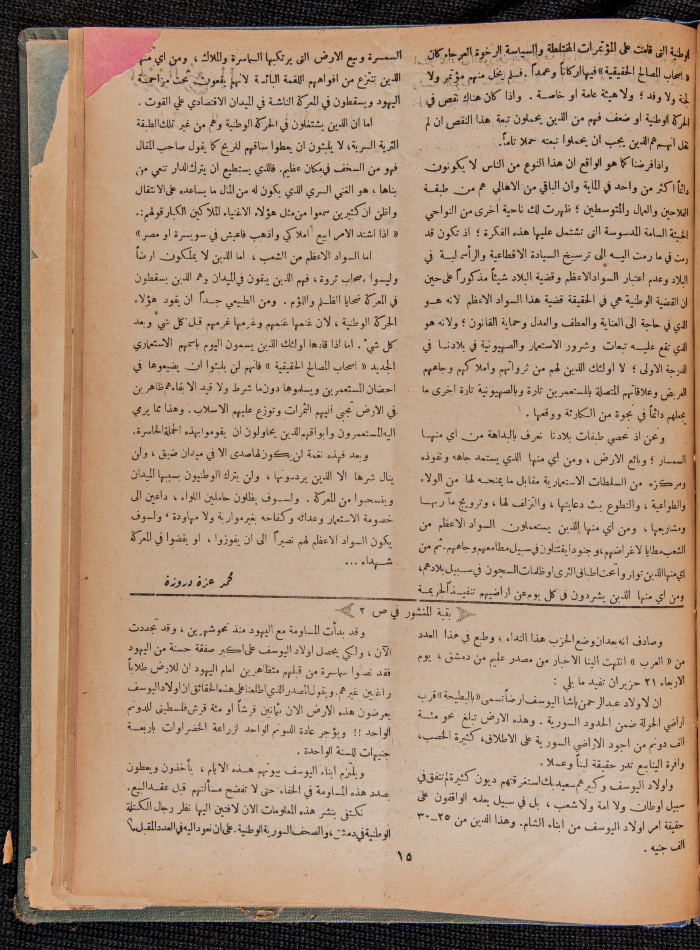 الوطنية التى قامت على المؤتمرات المختلطة والسياسة الرخوة العرجاء كان
« اصحاب المصالح الحقيقية » فيها أركاناً وعمداً . فلم يخل منهم مؤتمر ولا
لجنة ولا وفد ؛ ولا هيئة عامة او خاصة . واذا كان هناك نقص في
الحركة الوطنية او ضعف فهم من الذين يحملون تبعة هذا النقص ان لم
نقل انهم هم الذين يجب ان يحملوا تبعته حملا تاماً.
واذا فرضنا كما هو الواقع ان هذا النوع من الناس لا يكونون
دائماً اكثر من واحد في الماية وان الباقي من الاهالي هم من طبقة
الفلاحين والعمال والمتوسطين ؛ ظهرت لك ناحية أخرى من النواحي
الخبيثة السامة المدسوسة التى تشتمل عليها هذه الفكرة ؛ اذ تكون قد
رمت في ما رمت اليـه الى ترسيخ السيادة الاقطاعية والرأسمالية في
البلاد وعدم اعتبار السواد الاعظم وقضية البلاد شيئاً مذكوراً على حين
ان القضية الوطنية هي في الحقيقة قضية هذا السواد الاعظم لانه هو
الذي في حاجة الى العناية والعطف والعدل وحماية القانون ؛ ولانه هو
الذي تقع عليـه تبعات وشرور الاستعمار والصهيونية في بلادنا في
الدرجة الاولى ؛ لا اولئك الذين لهم من ثرواتهم واملاكهم وجاههم
العريض وعلاقاتهم المتصلة بالمستعمرين تارة وبالصهيونية تارة اخرى ما
يجعلهم دائماً في نجوة من الكارثة ووقعها .
ونحن اذ نحصي طبقات بلادنا نعرف بالبداهة من اي منهـا
السمسار ؛ وبائع الارض ، ومن اي منها الذي يستمد جاهه ونفوذه
ومركزه من السلطات الاستعمارية مقابل ما يمنحـه لها من الولاء
والطواعية ، والتطوع بث دعايتها ، والتزلف لها ، وترويج مآربهـا
ومشاريعها ، ومن اي منها الذين يستعملون السواد الاعظم من
الشعب مطايا لاغراضهم ، وجنودا يقتتلون في سبيل مطامعهم وجاههم . ثم من
اي منها الذين تواروا تحت اطباق الثرى او ظلمات السجون في سبيل بلادهم ،
ومن اي منها الذين يشردون في كل يوم عن اراضيهم تنفيـذاً لجريمة
السمسرة وبيع الارض التى يرتكبها السماسرة والملاك ، ومن اي منها
الذين تنتزع من افواههم اللقمة البائسة لانهم يقعون تحت مزاحمة
اليهود ويسقطون في المعركة الناشبة في الميدان الاقتصادي على القوت .
اما ان الذين يشتغلون في الحركة الوطنية وهم من غير تلك الطبقة
الثرية السرية، لا يلبثون ان يعطوا ساقهم للريح كما يقول صاحب المقال
فهو من السخف في مكان عظيم. فالذي يستطيع ان يترك الدار تنعي من
بناها ، هو الغني السري الذي يكون له من المال ما يساعده على الانتقال
واظن ان كثيرين سمعوا من مثل هؤلاء الاغنياء الملاكين الكبار قولهم :.
« اذا اشتد الامر ابيع املاكي واذهب فاعيش في سويسرة او مصر »
اما السواد الاعظم من الشعب ، اما الذين لا يملكون ارضاً
وليسوا اصحاب ثروة، فهم الذين يبقون في الميدان وهم الذين يسقطون
في المعركة ضحايا الظلم واللؤم . ومن الطبيعي جـداً ان يقود هؤلاء
الحركة الوطنية ، لان غنمها غنمهم وغرمها غرمهم قبل كل شيء وبعد
كل شيء . اما اذا قادها اولئك الذين يسمون اليوم باسمهم الاستعماري
الجديد « اصحاب المصالح الحقيقية » فانهم لن يلبثوا ان يضيعوها في
احضان المستعمرين ويسلموها دون ما شرط ولا قيد الا بقاءهم ظاهرين
في الارض تجبى اليهم الثمرات وتوزع عليهم الاسلاب . وهذا مما يرمي
اليه المستعمرون وابواقهم الذين يحاولون ان يقوموا بهذه الحملة الخاسرة.
وبعد فهذه نغمة لن يكون لها صدى الا في ميدان ضيق ، ولن
ينال شرها الا الذين يرددونها ، ولن يترك الوطنيون بسببها الميدان
وينسحبوا من المعركة . ولسوف يظلون حاملين اللواء ، داعين الى
خصومة الاستعمار وعدائه وكفاحه بغير مواربة ولا مهاودة ؛ ولسوف
يكون السواد الاعظم لهم نصيراً الى ان يفوزوا ، او يقضوا في المعركة
شهداء ...
محمد عزة دروزة
بقية المنشور في ص ٢
وصادف انه بعدان وضع الحزب هذا النداء ، وطبع في هذا العدد
من « العرب » انتهت الينا الاخبار من مصدر عليم من دمشق ، يوم
الاربعاء ٢١ حزيران تفيد ما يلي :
ان لاولاد عبد الرحمن باشا اليوسف ارضاً تسمى « بالبطيحة » قرب
اراضي الحولة ضمن الحدود السورية . وهذه الارض تبلغ نحو مئـة
الف دونم من اجود الاراضي السورية على الاطلاق، كثيرة الخصب،
وافرة الينابيع تدر حقيقة لبناً وعسلا .
واولاد اليوسف وكبيرهم سعيد بك استغرقتهم ديون كثيرة لم تنفق في
سبيل اوطان ولا امة ولا شعب ، بل في سبيل يعلمه الواقفون على
حقيقة امر اولاد اليوسف من ابناء الشام. وهذا الدين من ٢٥-٣٠
الف جنيه .
وقد بدأت المساومة مع اليهود منذ نحو شهرين ، وقد تجددت
الآن ، ولكي يحصل اولاد اليوسف على اكبر صفقة حسنة من اليهود
فقد نصبوا سماسرة من قبلهم متظاهرين امام اليهود ان للارض طلاباً
راغبين غيرهم. ويقول المصدر الذي اطلعنا على هذه الحقائق ان اولاد اليوسف
يعرضون هذه الارض الان بثمانين قرشاً او مئة قرش فلسطيني للدونم
الواحد !! ويؤجر عادة الدونم الواحد لزراعة الخضراوات باربعـة
جنيهات للسنة الواحدة .
ويلتزم ابناء اليوسف بيوتهم هـذه الايام ، يأخذون ويعطون
بصدد هذه المساومة في الخفاء حتى لا تفضح مسألتهم قبل عقد البيع.
نكتفي بنشر هذه المعلومات الان لافتين اليها نظر رجال الكتلة
الوطنية في دمشق، والصحف السورية الوطنية. على ان نعود اليه في العدد المقبل.؟
١٥